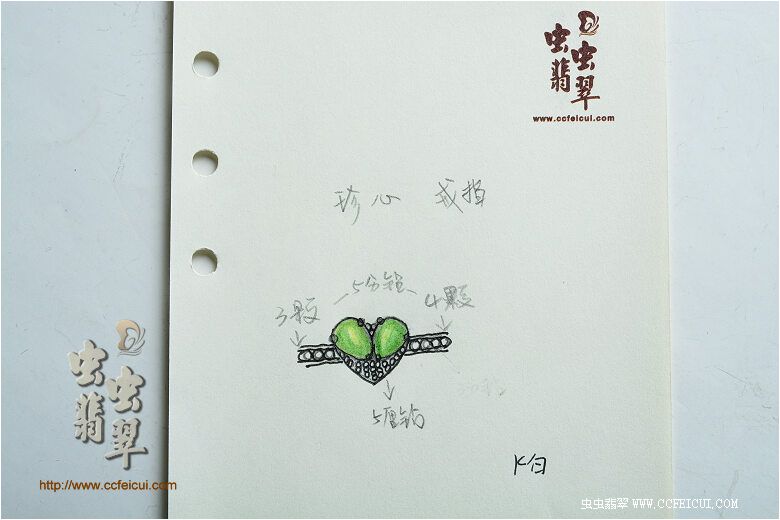 虫虫翡翠
www.ccfeicui.com
珍心 戒指
5分钻
3颗
4颗
5厘钻
K白
虫虫翡翠
http://www.ccfeicui.com
虫虫翡翠 WWW.CCFEICUI.COM